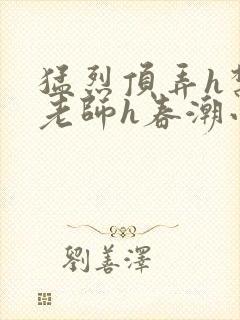 猛烈頂弄h
老師h春潮
劉善澤